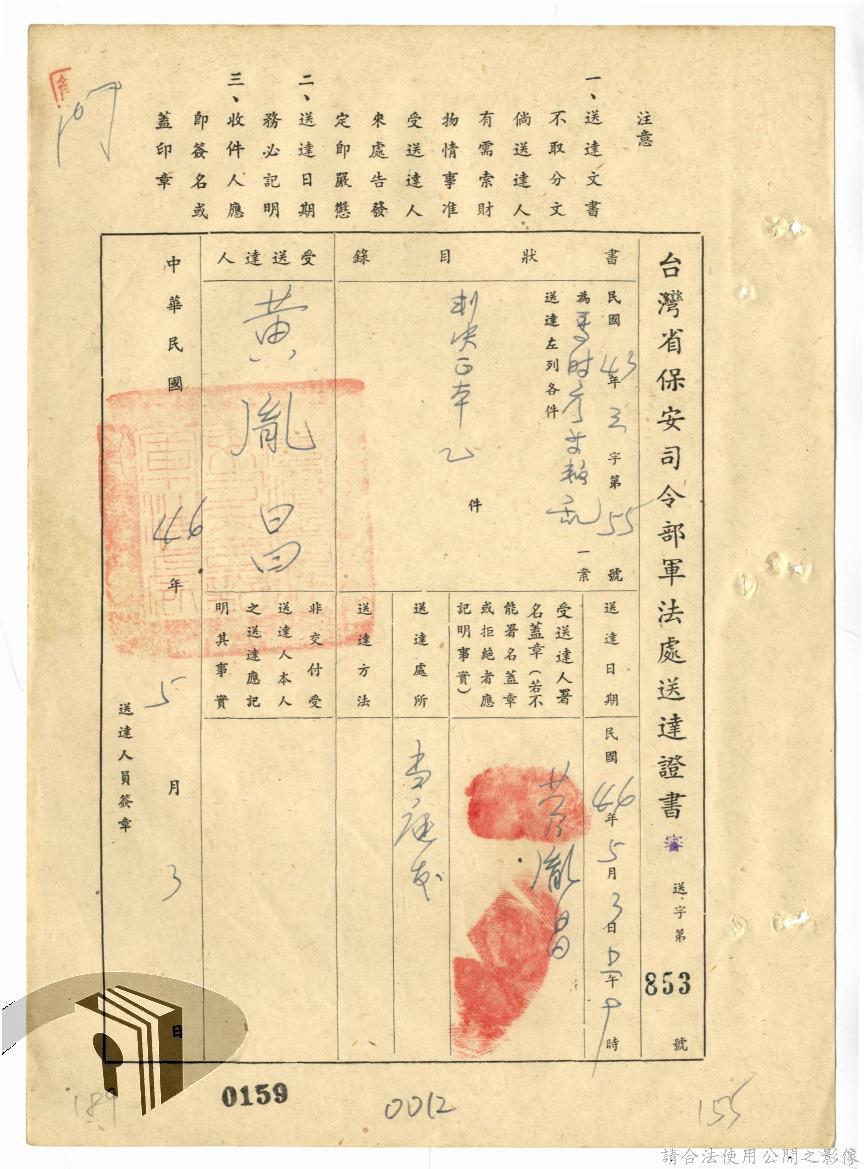 注意
一、送達文書
不取分文
倘送達人
有需索財
物情事准
受送達人
來處告發
定即嚴懲
二、送達日期
務必記明
三、收件人應
即簽名或
蓋印章
台灣省保安司令部軍法處送達證書
審
送字第
853
號
書狀目錄
民國43年三字第55號
為馬時彥等叛亂一案
送達左列各件
判決正本乙件
受送達人
黃胤昌
送達日期
民國46年5月3日上午9時
受送達人署
名蓋章(若不
能署名蓋章
或拒絕者應
記明事實)
黃胤昌
送達處所
當庭發
送達方法
非交付受
送達人本人
之送達應記
明其事實
中華民國46年5月3日
送達人員簽章
189
0159
0012
155
請合法使用公開之影像